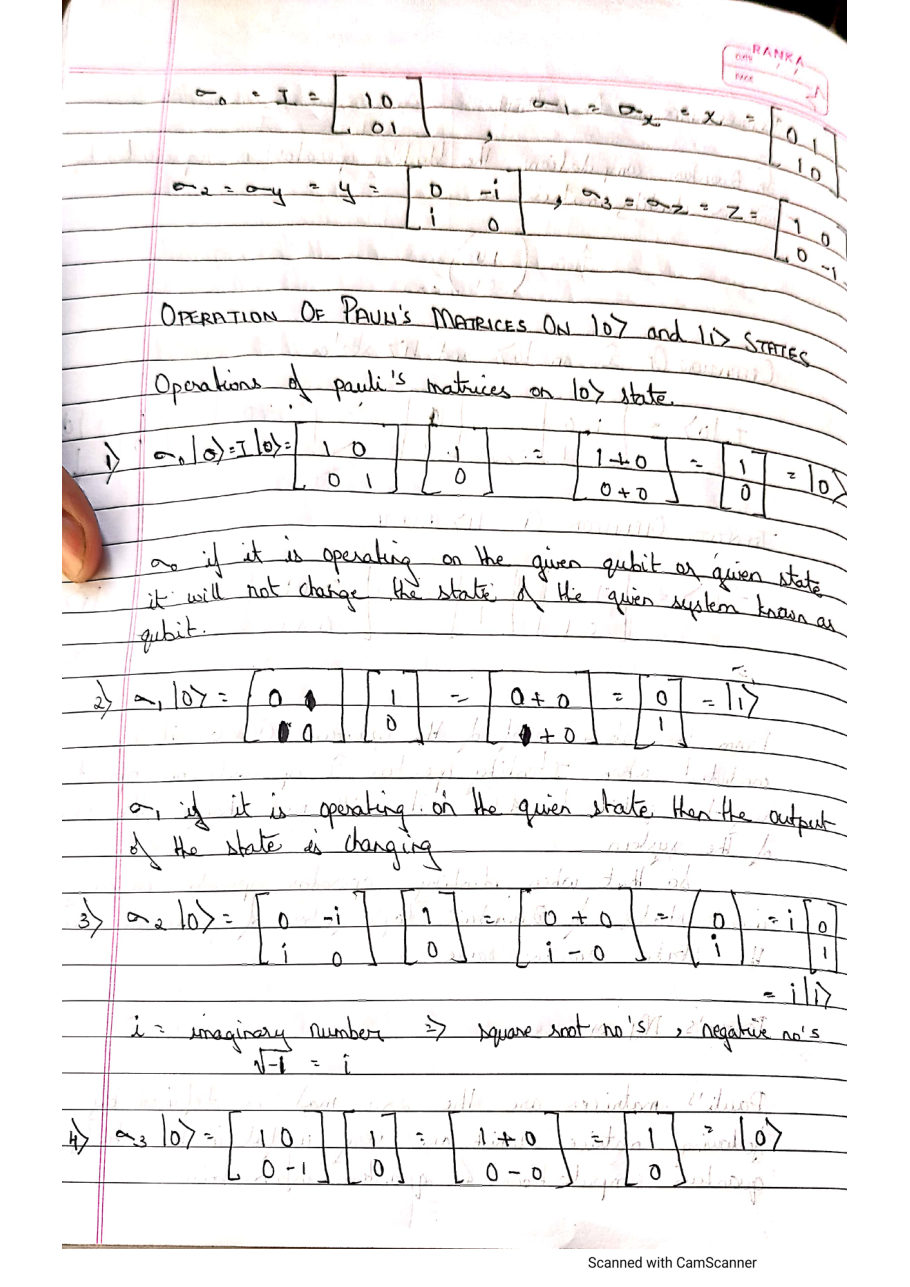 RANKA
DATE / /
PAGE
σ₀ = I = [1 0; 0 1] , σ₁ = σx = x = [0 1; 1 0]
σ₂ = σy = y = [0 -i; i 0] , σ₃ = σz = z = [1 0; 0 -1]
OPERATION OF PAULI'S MATRICES ON |0> and |1> STATES
Operations of pauli's matrices on |0> state.
1) σ₀ |0> = I |0> = [1 0; 0 1] [1; 0] = [1+0; 0+0] = [1; 0] = |0>
σ₀ if it is operating on the given qubit or given state
it will not change the state of the given system known as
qubit.
2) σ₁ |0> = [0 1; 1 0] [1; 0] = [0+0; 1+0] = [0; 1] = |1>
σ₁ if it is operating on the given state then the output
of the state is changing
3) σ₂ |0> = [0 -i; i 0] [1; 0] = [0+0; i-0] = (0; i) = i [0; 1]
= i|1>
i = imaginary number => square root no's , negative no's
√-1 = i
4) σ₃ |0> = [1 0; 0 -1] [1; 0] = [1+0; 0-0] = [1; 0] = |0>
Scanned with CamScanner